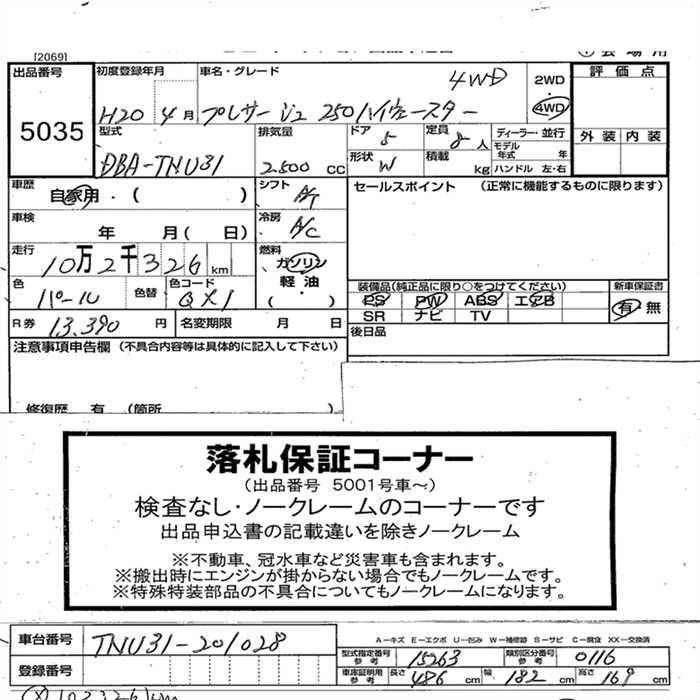 [2069]
出品番号
5035
初度登録年月
H20 4月
車名・グレード
プレサージュ 250ハイウェースター 4WD
2WD
4WD
評価点
外装 内装
型式
DBA-TNU31
排気量
2500 cc
ドア 5
定員 8人
形状 W
積載 kg
ディーラー・並行
モデル年式 年
ハンドル 左・右
車歴
自家用・( )
シフト A/T
セールスポイント (正常に機能するものに限ります)
車検
年 月( 日)
冷房 A/C
走行
10万2千326km
燃料
ガソリン
軽油
( )
色
パール
色替
色コード
QX1
装備品(純正品に限り○をつけてください)
PS PW ABS エアB
SR ナビ TV
新車保証書
有・無
R券 13,390 円
名変期限 月 日
後日品
注意事項申告欄 (不具合内容等は具体的に記入して下さい)
修復歴 有 (箇所 )
落札保証コーナー
(出品番号 5001号車～)
検査なし・ノークレームのコーナーです
出品申込書の記載違いを除きノークレーム
※不動車、冠水車など災害車も含まれます。
※搬出時にエンジンが掛からない場合でもノークレームです。
※特殊特装部品の不具合についてもノークレームになります。
車台番号 TNU31-201028
A-キズ E-エクボ U-凹み W-補修跡 S-サビ C-腐食 XX-交換済
型式指定番号 参考 15263
類別区分番号 参考 0116
登録番号
車庫証明用 参考 長さ 486 cm 幅 182 cm 高さ 169 cm
102326km